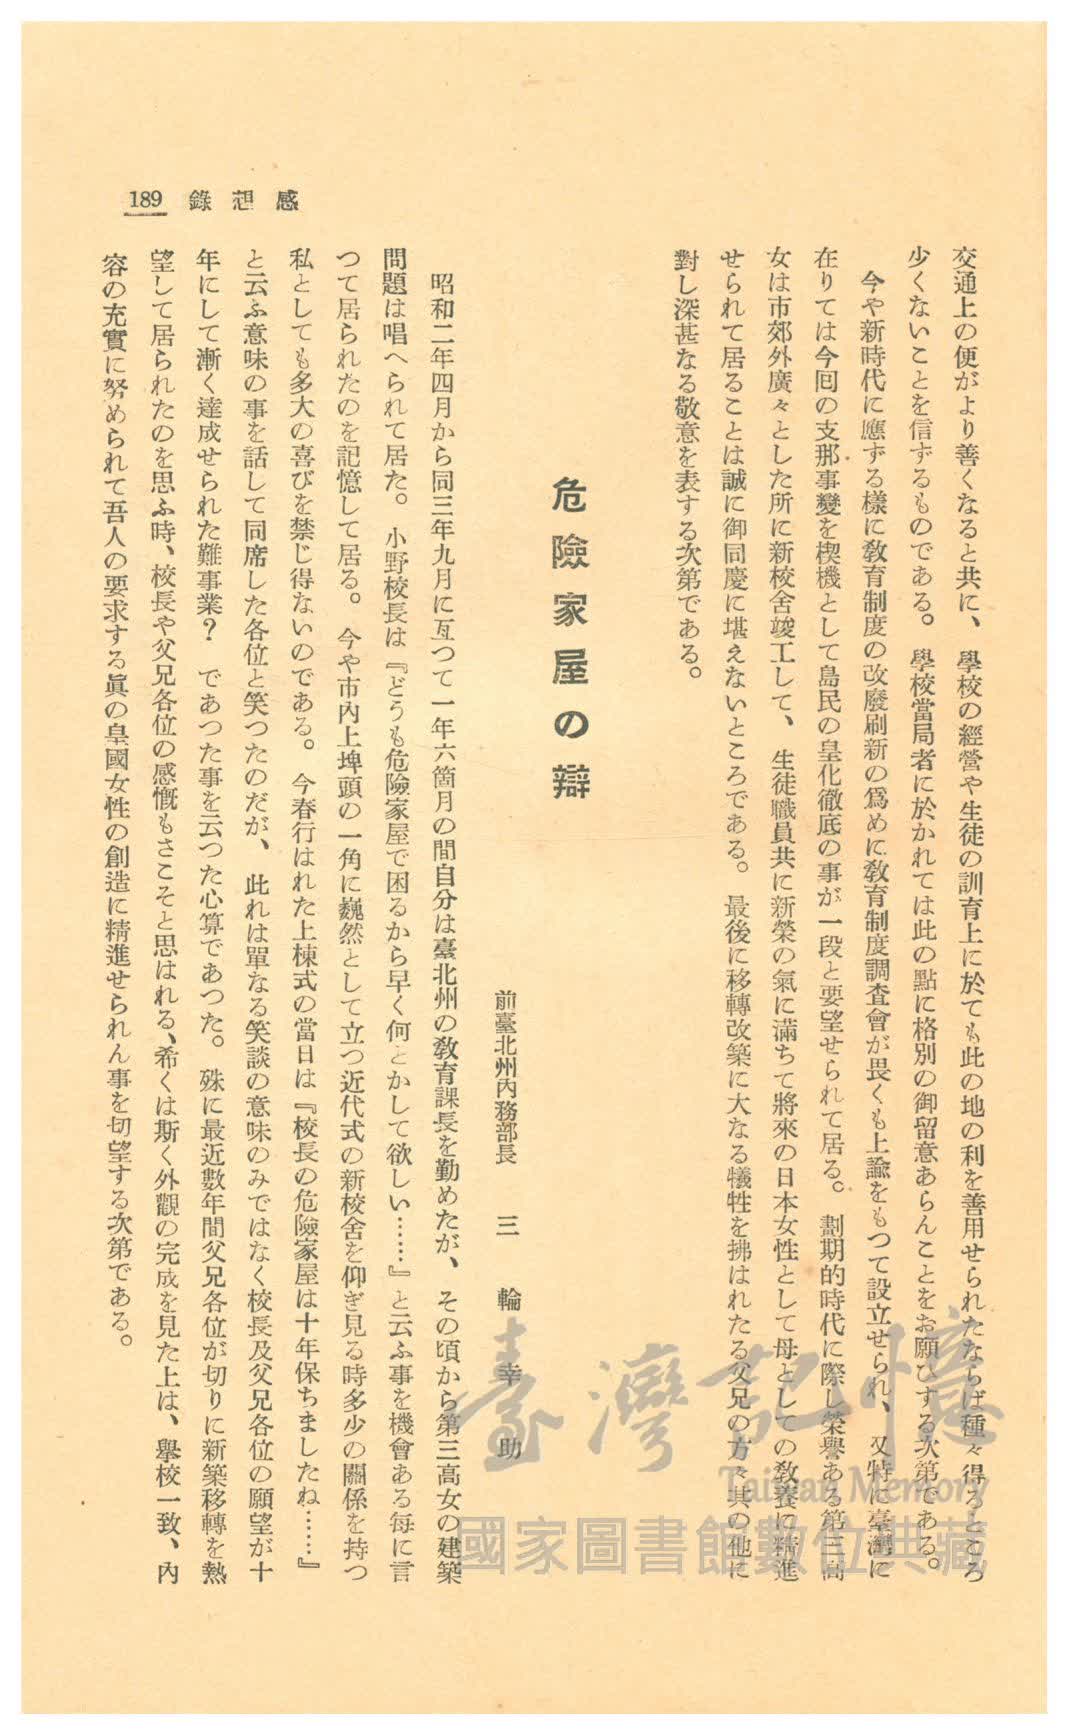 189 錄想感
交通上の便がより善くなると共に、學校の經營や生徒の訓育上に於ても此の地の利を善用せられたならば種々得るところ
少くないことを信ずるものである。學校當局者に於かれては此の點に格別の御留意あらんことをお願ひする次第である。
今や新時代に應ずる樣に敎育制度の改廢刷新の爲めに敎育制度調査會が畏くも上諭をもつて設立せられ、又特に臺灣に
在りては今囘の支那事變を楔機として島民の皇化徹底の事が一段と要望せられて居る。劃期的時代に際し榮譽ある第三高
女は市郊外廣々とした所に新校舍竣工して、生徒職員共に新榮の氣に滿ちて將來の日本女性として母としての敎養に精進
せられて居ることは誠に御同慶に堪えないところである。最後に移轉改築に大なる犧牲を拂はれたる父兄の方々其の他に
對し深甚なる敬意を表する次第である。
危險家屋の辯
前臺北州內務部長 三輪幸助
昭和二年四月から同三年九月に亙つて一年六箇月の間自分は臺北州の敎育課長を勤めたが、その頃から第三高女の建築
問題は唱へられて居た。小野校長は『どうも危險家屋で困るから早く何とかして欲しい……』と云ふ事を機會ある每に言
つて居られたのを記憶して居る。今や市內上埤頭の一角に巍然として立つ近代式の新校舍を仰ぎ見る時多少の關係を持つ
私としても多大の喜びを禁じ得ないのである。今春行はれた上棟式の當日は『校長の危險家屋は十年保ちましたね……』
と云ふ意味の事を話して同席した各位と笑つたのだが、此れは單なる笑談の意味のみではなく校長及父兄各位の願望が十
年にして漸く達成せられた難事業？であつた事を云つた心算であつた。殊に最近數年間父兄各位が切りに新築移轉を熱
望して居られたのを思ふ時、校長や父兄各位の感慨もさこそと思はれる、希くは斯く外觀の完成を見た上は、擧校一致、內
容の充實に努められて吾人の要求する眞の皇國女性の創造に精進せられん事を切望する次第である。
臺灣記憶
Taiwan Memory
國家圖書館數位典藏